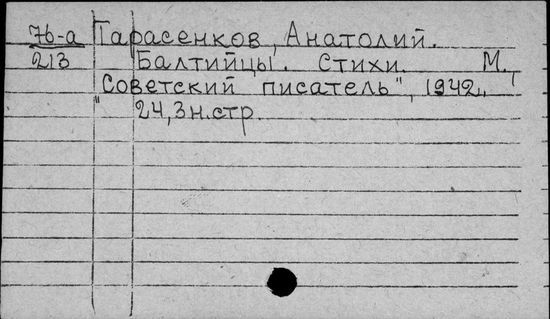 76-а Тарасенков, Анатолий.
213 Балтийцы. Стихи. М.,
"Советский писатель", 1942.
24,3н.стр.